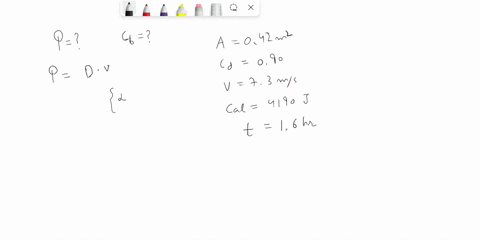 P = ?
C_b = ?
P = D · v
{ α
A = 0.42 m²
C_d = 0.90
V = 7.3 m/s
Cal = 4190 J
t = 1.6 hr